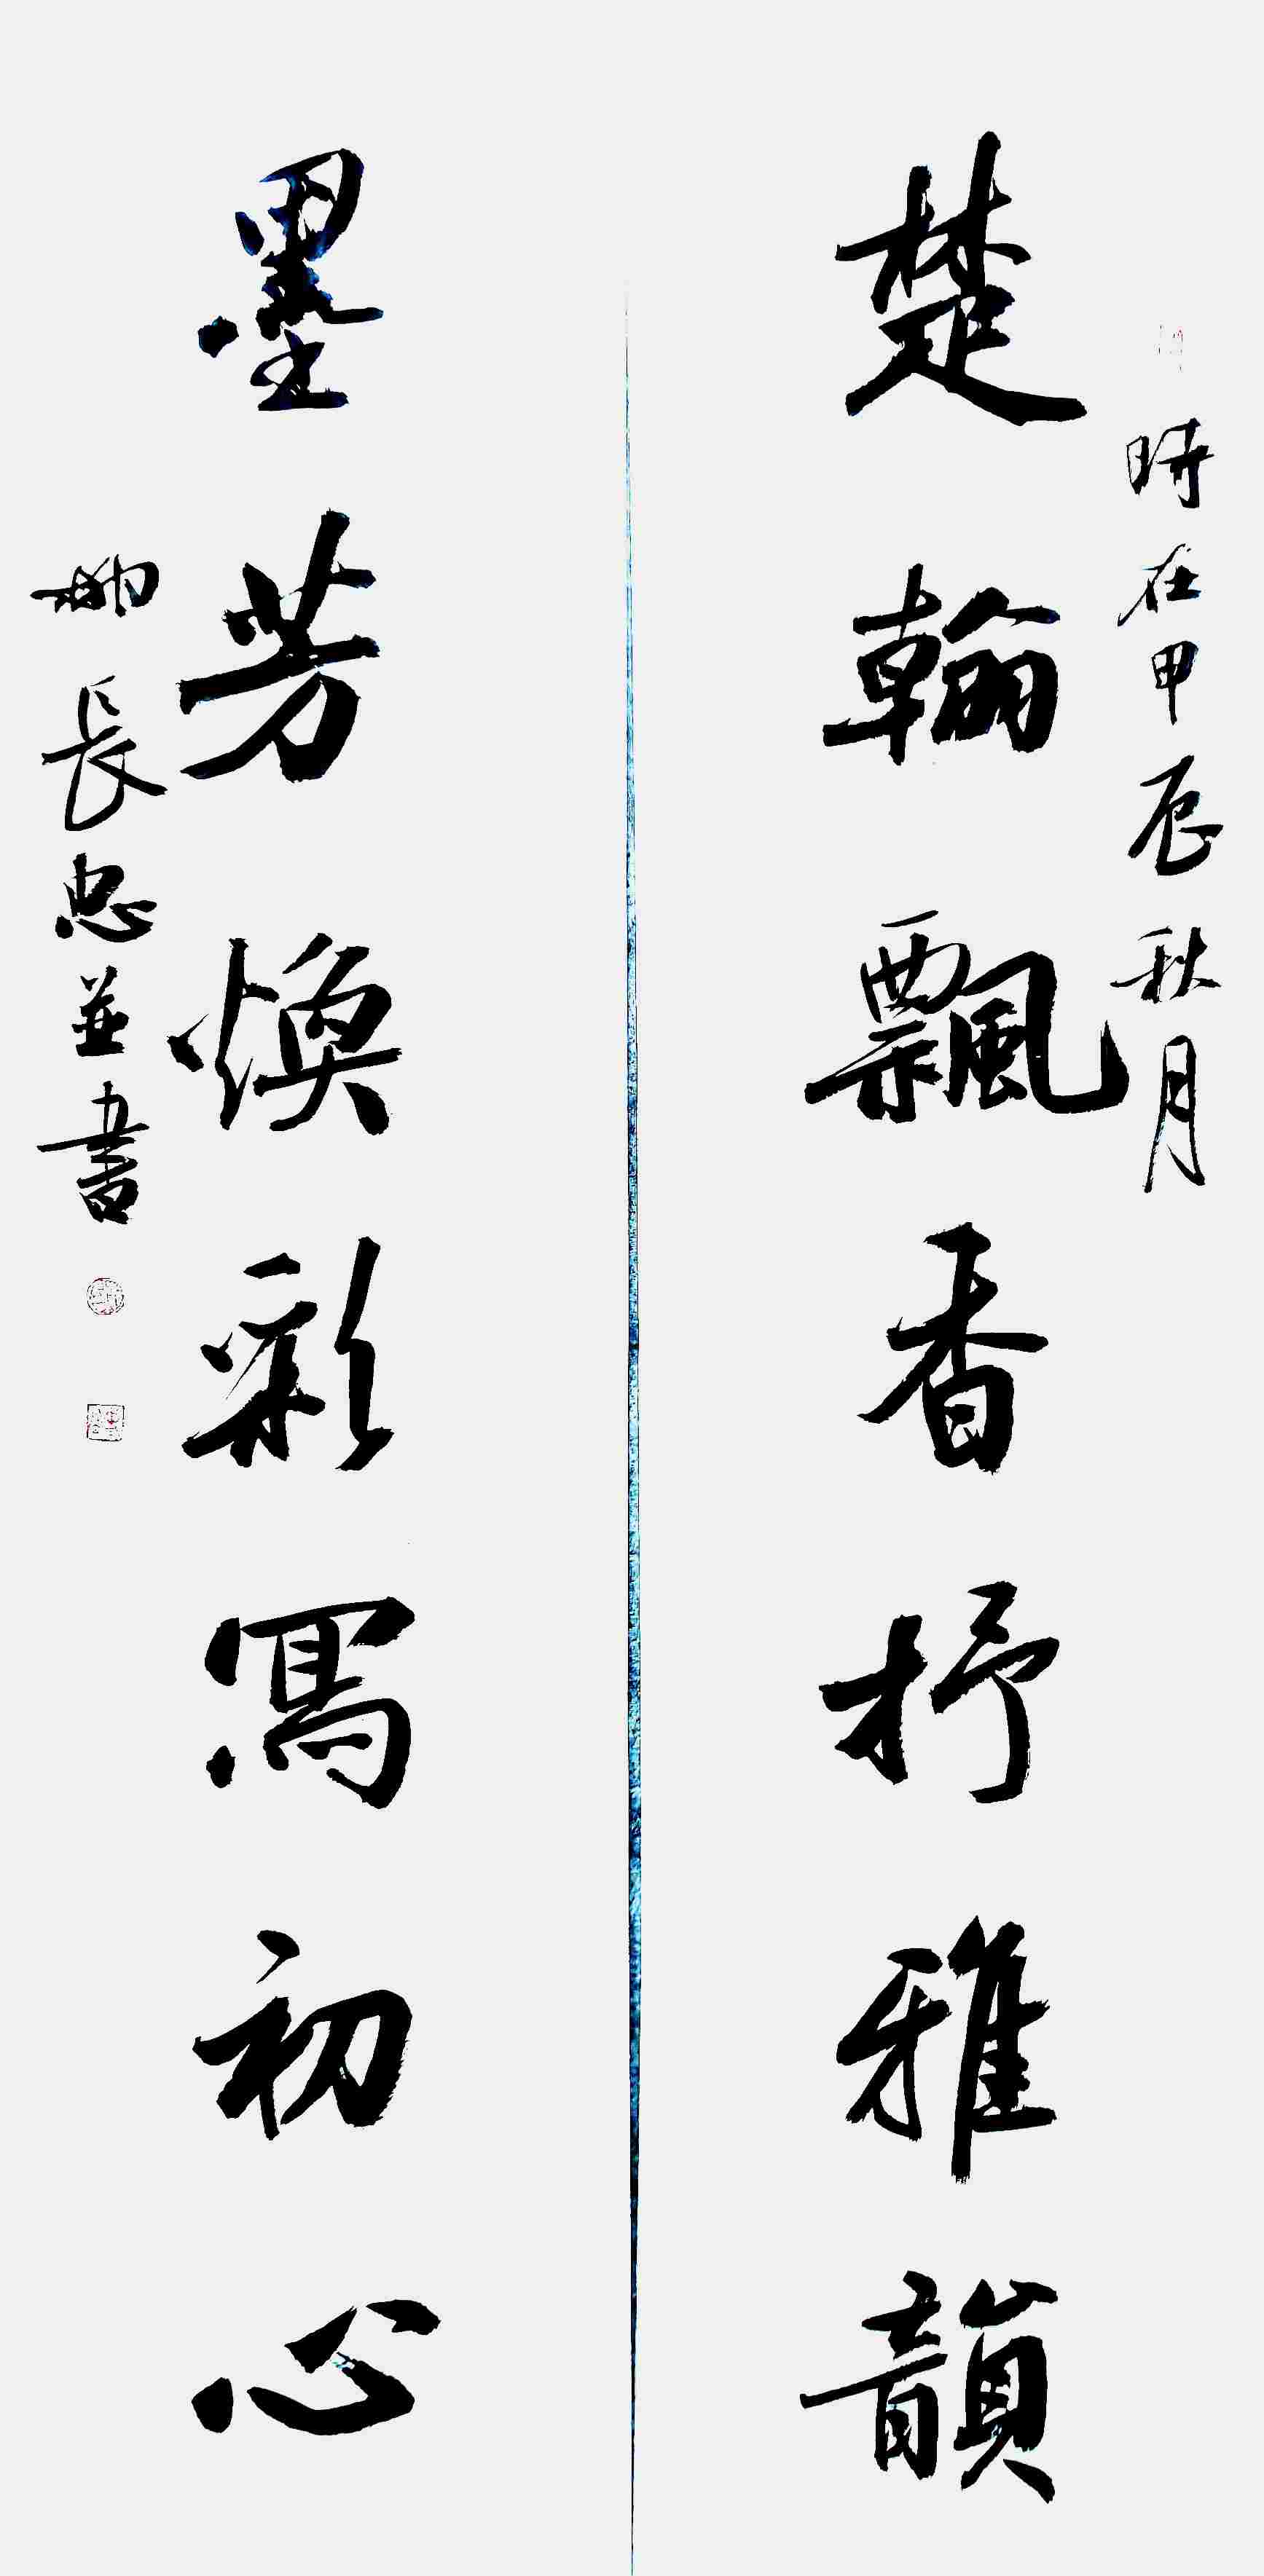 時在甲辰秋月
楚翰飄香抒雅韻
墨芳煥彩寫初心
柳長忠並書